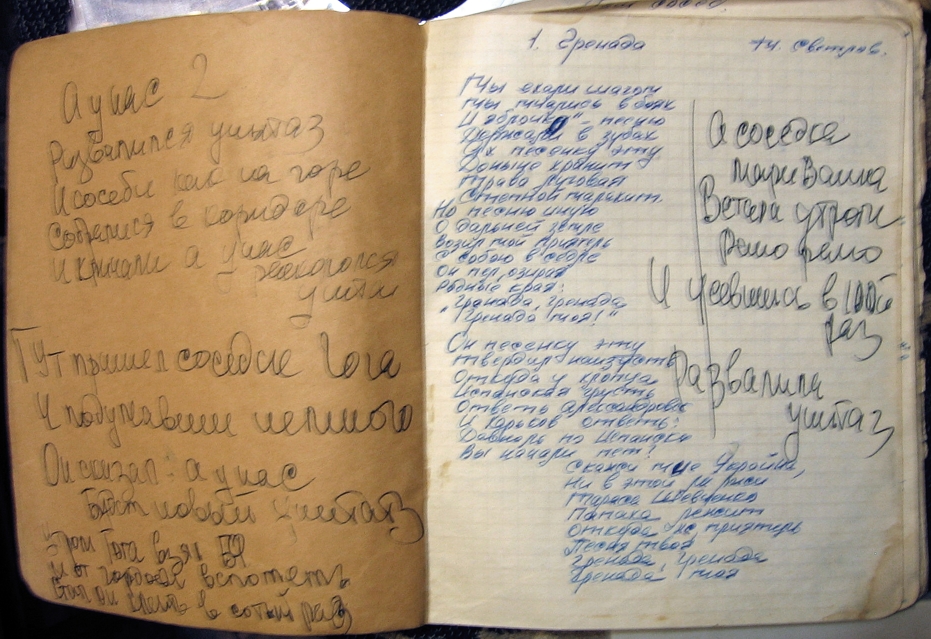 А у нас 2
Развалился унытаз
И соседи как на горе
Собралися в коридоре
И кричали а у нас
раскололся
унытаз
Тут пришел соседский Гога
И подумавши немного
Он сказал: а у нас
Будет новый унытаз
Утром Гога взял
И от города вспотеть
Стал он в сотый раз
1. Гренада
М. Светлов.
Мы ехали шагом
Мы мчались в боях
И яблочко" - песню
Держали в зубах
Ах песенку эту
Доныне хранит
Трава молодая
Степной малахит.
Но песню иную
О дальней земле
Возил мой приятель
С собою в седле
Он пел озирая
Родные края:
"Гренада, Гренада
"Гренада моя!"
Он песенку эту
твердил наизусть
Откуда у хлопца
Испанская грусть
Ответь Александровск
И Харьков ответь:
Давноль по Испански
Вы начали петь?
Скажи мне Украйна,
Ни в этой ли ржи
Тараса Шевченко
Папаха лежит
Откуда уж приятель
Песня твоя
Гренада, Гренада
Гренада моя
А соседка
Мариванна
Встала утром
Рано рано
И усевшись в 100й
раз
Развалила
унытаз